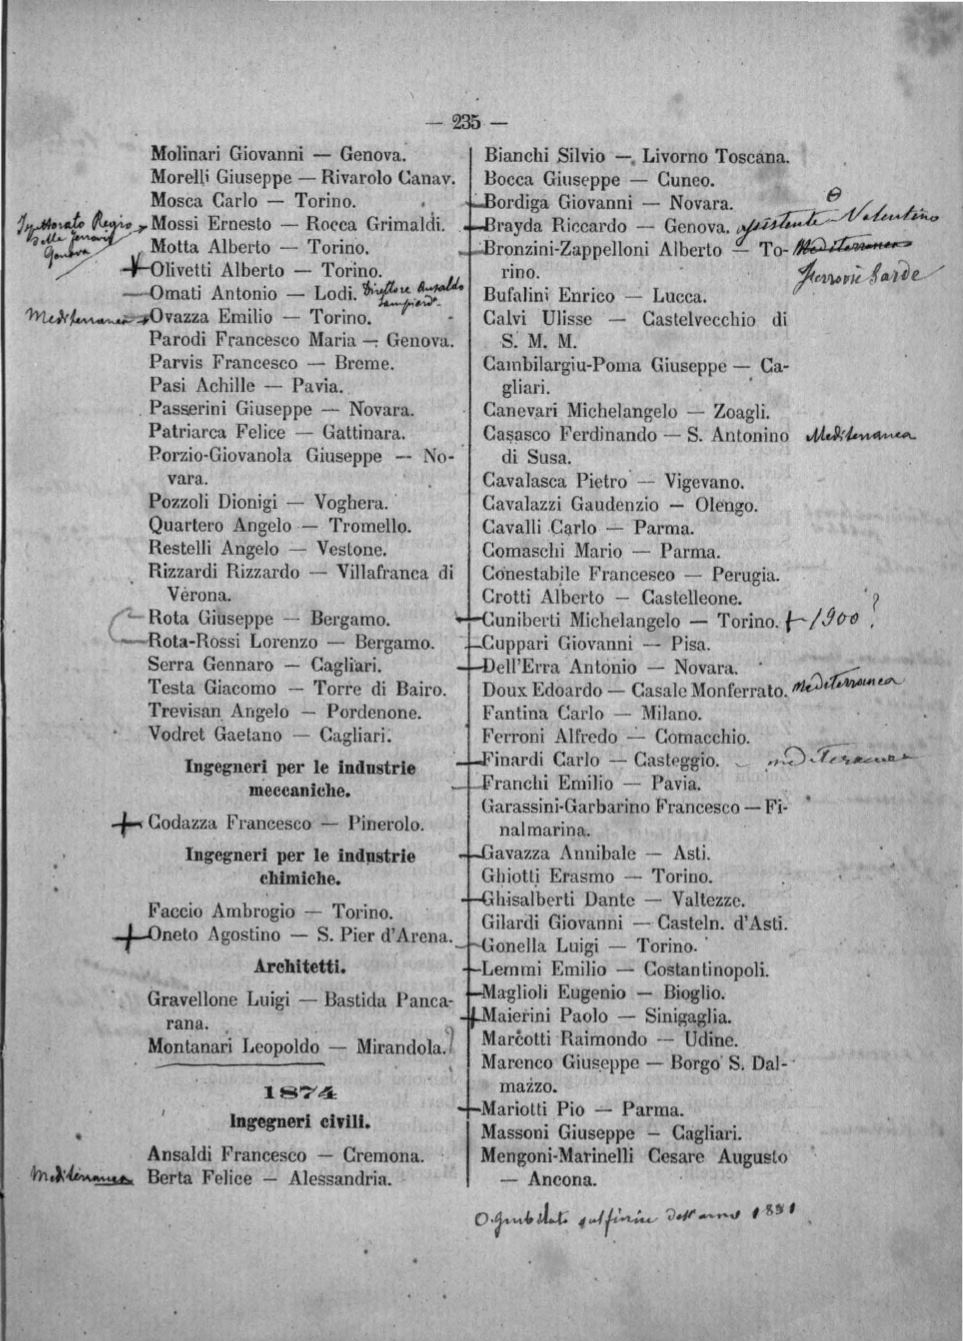 — 235 —
Molinari Giovanni — Genova.
Morelli Giuseppe — Rivarolo Canav.
Mosca Carlo — Torino.
Mossi Ernesto — Rocca Grimaldi.
Motta Alberto — Torino.
Olivetti Alberto — Torino.
Omati Antonio — Lodi. Direttore
Mediterranea Ovazza Emilio — Torino.
Parodi Francesco Maria — Genova.
Parvis Francesco — Breme.
Pasi Achille — Pavia.
Passerini Giuseppe — Novara.
Patriarca Felice — Gattinara.
Porzio-Giovanola Giuseppe — No-
vara.
Pozzoli Dionigi — Voghera.
Quartero Angelo — Tromello.
Restelli Angelo — Vestone.
Rizzardi Rizzardo — Villafranca di
Verona.
Rota Giuseppe — Bergamo.
Rota-Rossi Lorenzo — Bergamo.
Serra Gennaro — Cagliari.
Testa Giacomo — Torre di Bairo.
Trevisan Angelo — Pordenone.
Vodret Gaetano — Cagliari.
Ingegneri per le industrie
meccaniche.
Codazza Francesco — Pinerolo.
Ingegneri per le industrie
chimiche.
Faccio Ambrogio — Torino.
Oneto Agostino — S. Pier d'Arena.
Architetti.
Gravellone Luigi — Bastida Panca-
rana.
Montanari Leopoldo — Mirandola.
1874
Ingegneri civili.
Ansaldi Francesco — Cremona.
Mediterranea Berta Felice — Alessandria.
Bianchi Silvio — Livorno Toscana.
Bocca Giuseppe — Cuneo.
Bordiga Giovanni — Novara.
Brayda Riccardo — Genova. assistente Valentino
Bronzini-Zappelloni Alberto — To- Mediterranea
rino. Ferrovie Sarde
Bufalini Enrico — Lucca.
Calvi Ulisse — Castelvecchio di
S. M. M.
Cambilargiu-Poma Giuseppe — Ca-
gliari.
Canevari Michelangelo — Zoagli.
Casasco Ferdinando — S. Antonino Mediterranea
di Susa.
Cavalasca Pietro — Vigevano.
Cavalazzi Gaudenzio — Olengo.
Cavalli Carlo — Parma.
Comaschi Mario — Parma.
Conestabile Francesco — Perugia.
Crotti Alberto — Castelleone.
Cuniberti Michelangelo — Torino. + 1900 ?
Cuppari Giovanni — Pisa.
Dell'Erra Antonio — Novara.
Doux Edoardo — Casale Monferrato. Mediterranea
Fantina Carlo — Milano.
Ferroni Alfredo — Comacchio.
Finardi Carlo — Casteggio. mediterranea
Franchi Emilio — Pavia.
Garassini-Garbarino Francesco — Fi-
nalmarina.
Gavazza Annibale — Asti.
Ghiotti Erasmo — Torino.
Ghisalberti Dante — Valtezze.
Gilardi Giovanni — Casteln. d'Asti.
Gonella Luigi — Torino.
Lemmi Emilio — Costantinopoli.
Maglioli Eugenio — Bioglio.
Maierini Paolo — Sinigaglia.
Marcotti Raimondo — Udine.
Marenco Giuseppe — Borgo S. Dal-
mazzo.
Mariotti Pio — Parma.
Massoni Giuseppe — Cagliari.
Mengoni-Marinelli Cesare Augusto
— Ancona.
dell'anno 1891